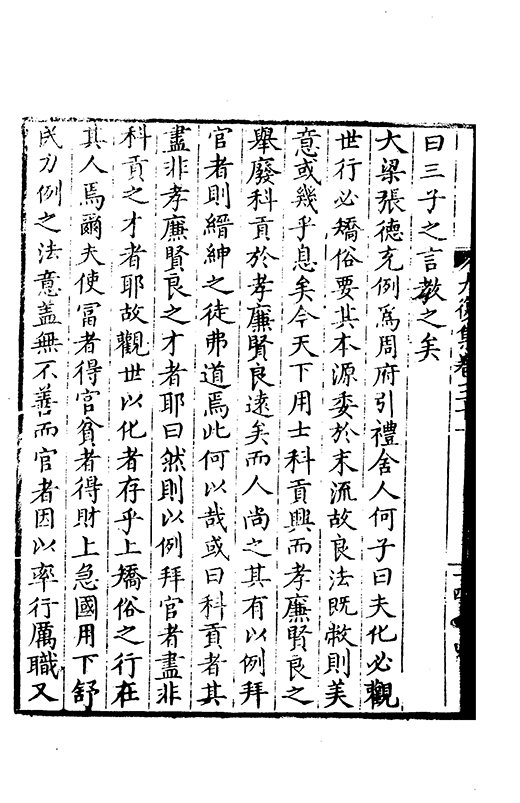 曰三子之言教之矣
大梁張德充例爲周府引禮舍人何子曰夫化必觀
世行必矯俗要其本源委於末流故良法既敝則美
意或幾乎息矣今天下用士科貢興而孝廉賢良之
舉廢科貢於孝廉賢良遠矣而人尚之其有以例拜
官者則縉紳之徒弗道焉此何以哉或曰科貢者其
盡非孝廉賢良之才者耶曰然則以例拜官者盡非
科貢之才者耶故觀世以化者存乎上矯俗之行在
其人焉爾夫使富者得官貧者得財上急國用下舒
民力例之法意蓋無不善而官者因以率行厲職又
大復集卷三十